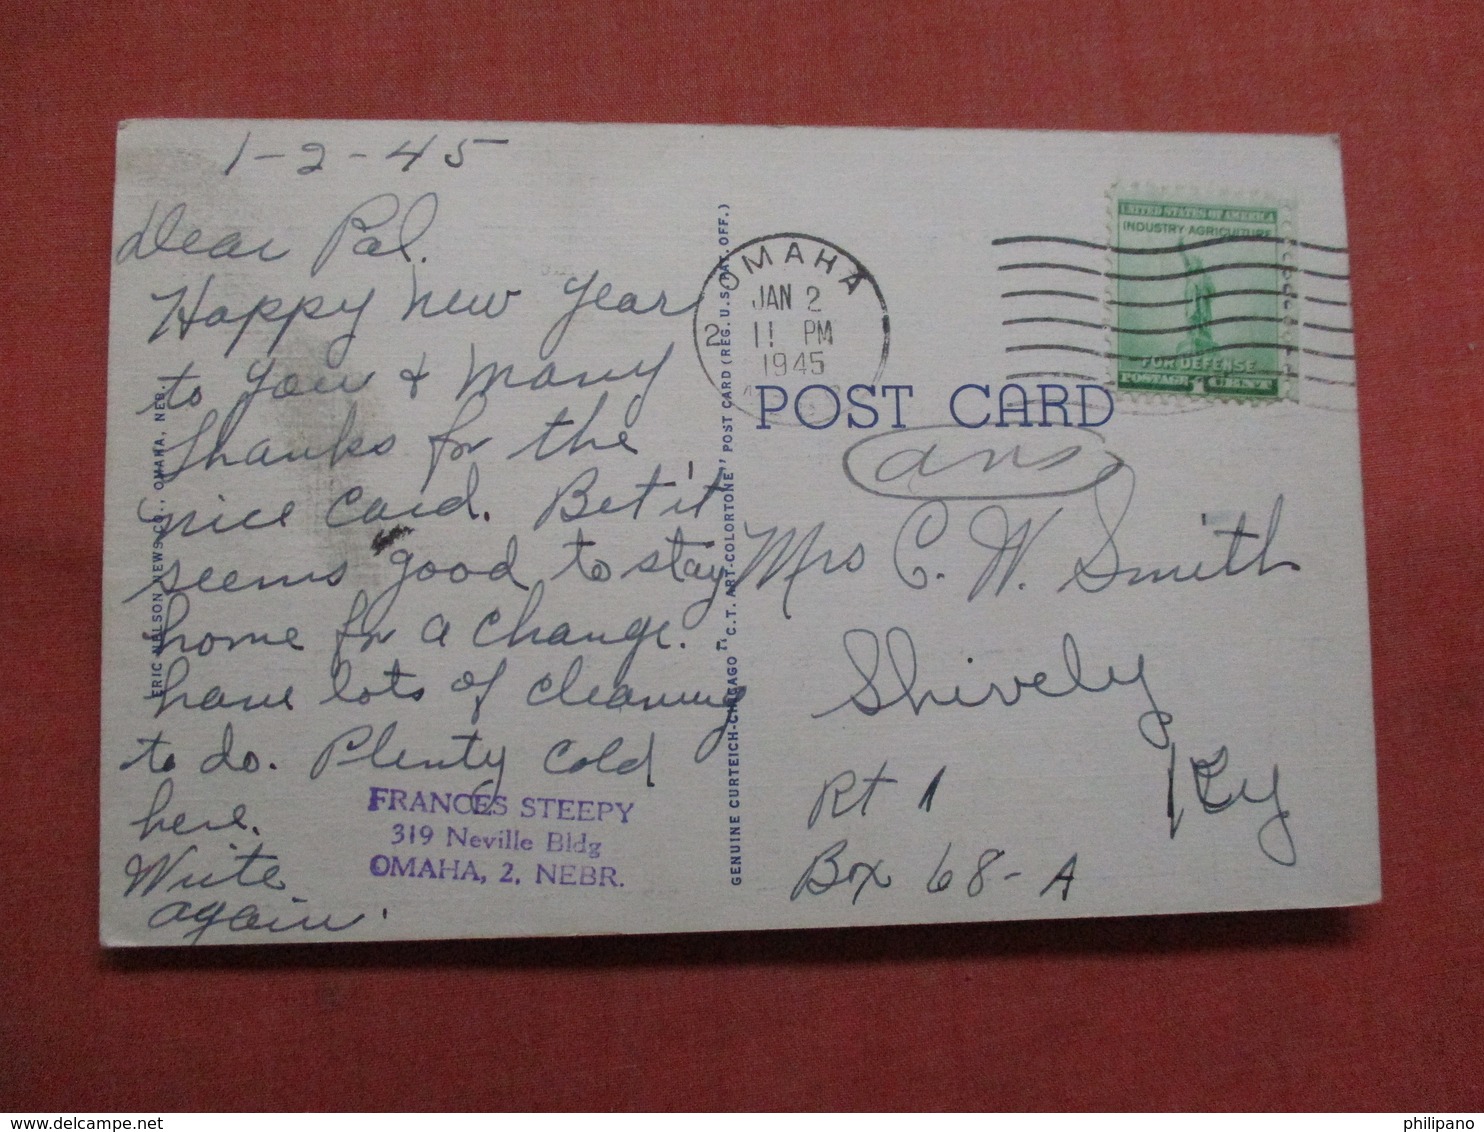 1-2-45
Dear Pal.
Happy New Year
to you & many
thanks for the
nice card. Bet it
seems good to stay
home for a change. I
have lots of cleaning
to do. Plenty cold
here.
Write
again.
FRANCES STEEPY
319 Neville Bldg
OMAHA, 2, NEBR.
ERIC NELSON NEWS CO., OMAHA, NEB.
GENUINE CURTEICH-CHICAGO "C.T. ART-COLORTONE" POST CARD (REG. U.S. PAT. OFF.)
OMAHA
2
JAN 2
11 PM
1945
UNITED STATES OF AMERICA
INDUSTRY AGRICULTURE
FOR DEFENSE
POSTAGE 1 CENT
POST CARD
ans
Mrs C. W. Smith
Shively
Ky
Rt 1
Box 68-A
philipano